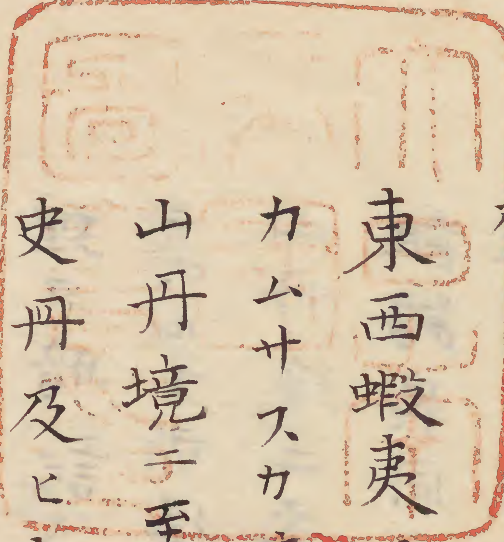 東西蝦夷
カムサスカ
山丹境ニ至
史冊及ヒ